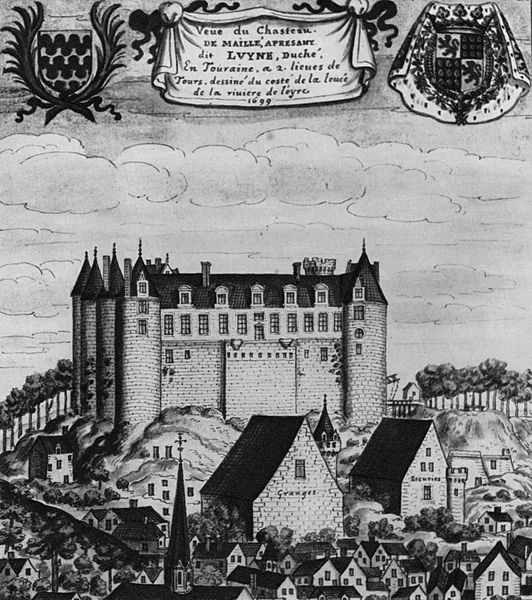 Veue du Chasteau
DE MAILLÉ, APRESANT
dit LUYNE, Duché,
En Touraine, a 2. lieues de
Tours, dessiné du costé de la leuée
de la riuiere de loyre
1699
Granges
Escuries